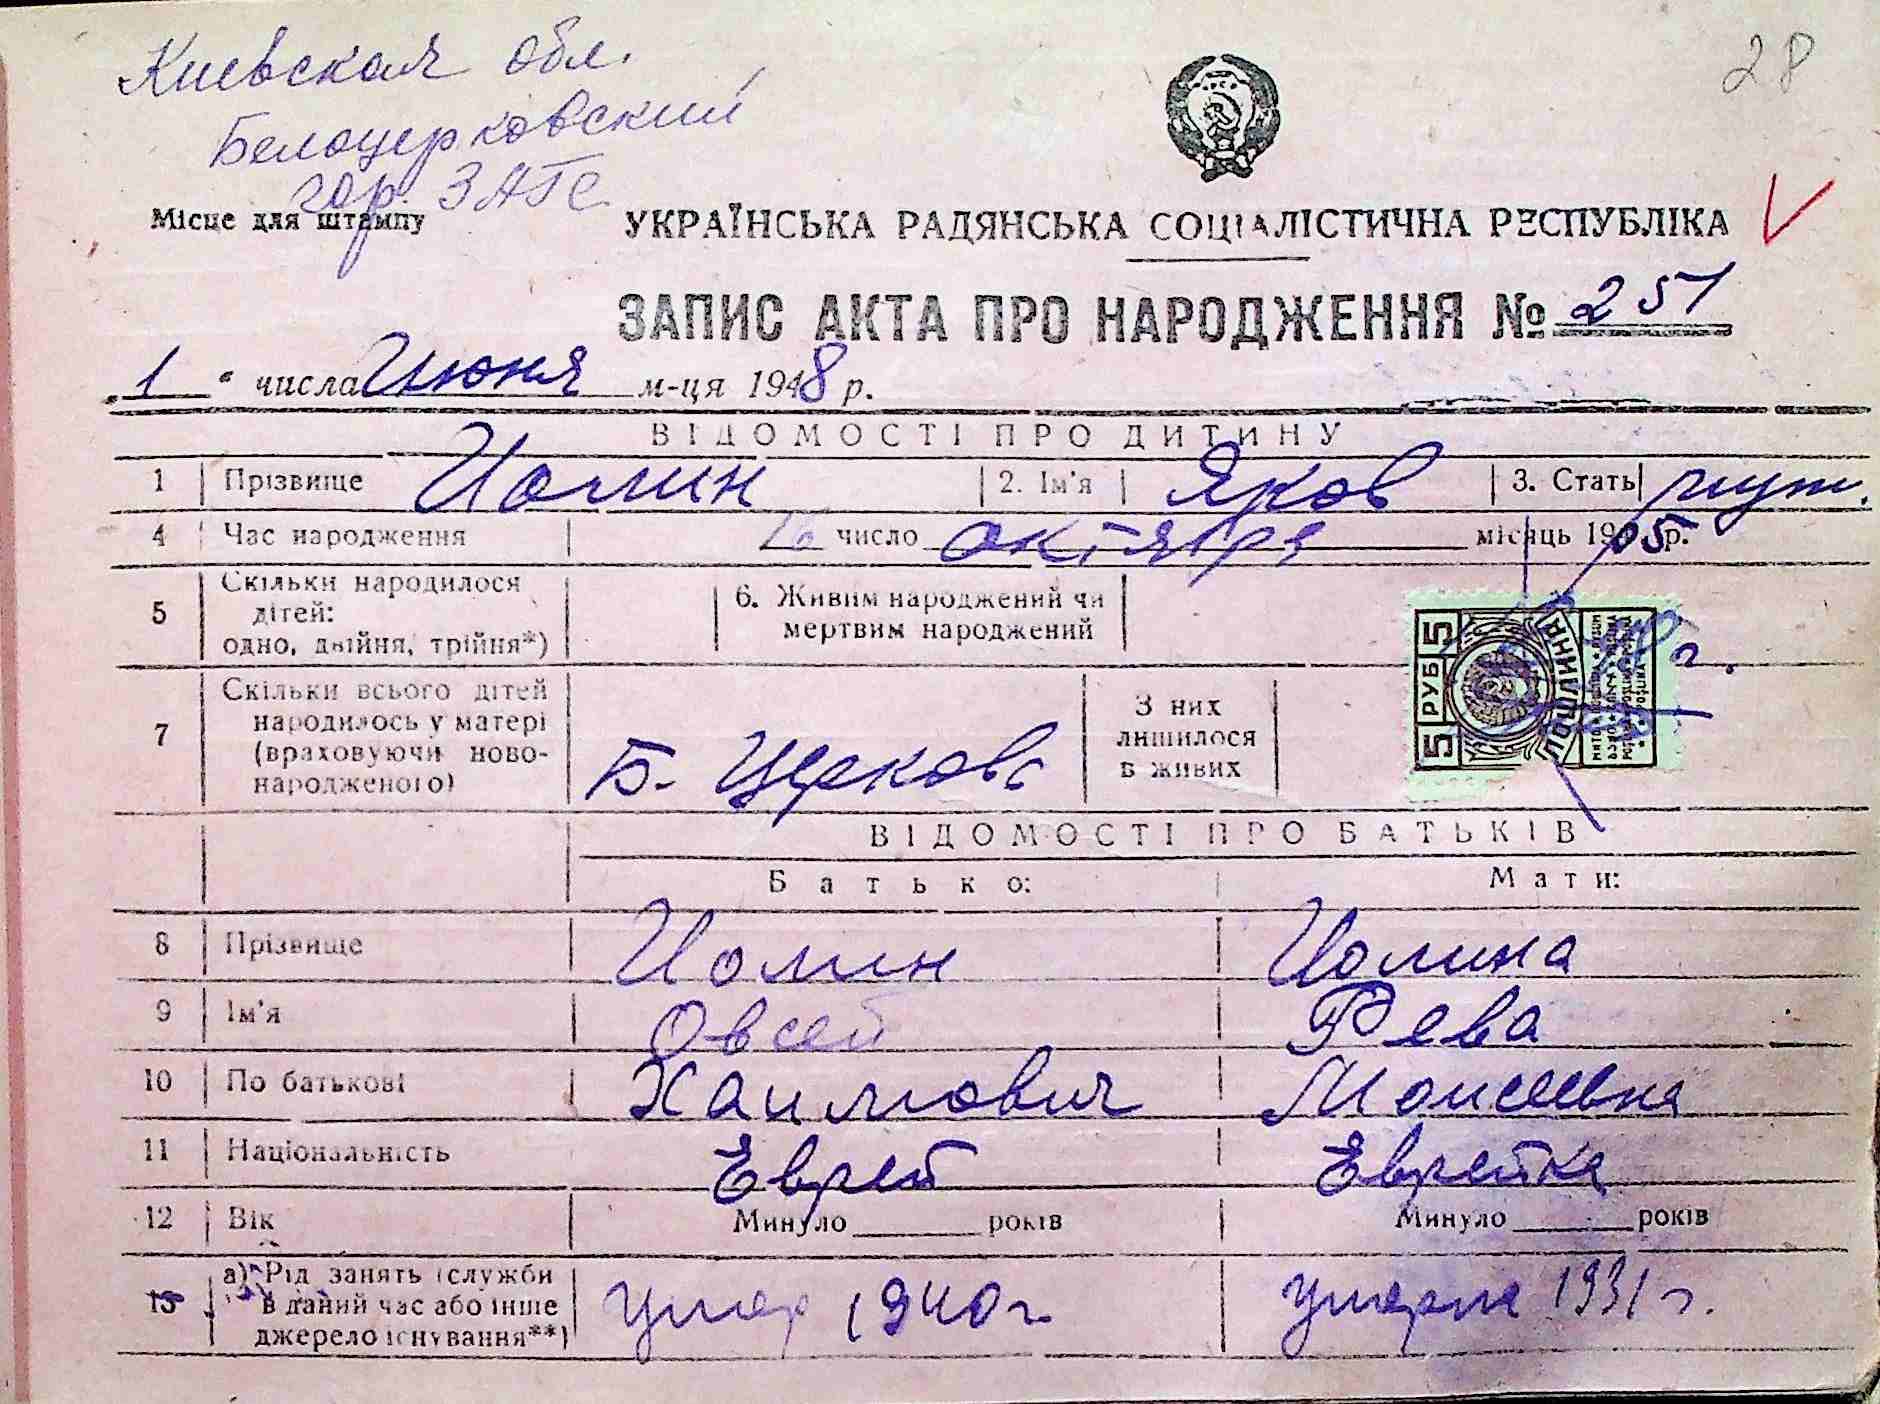 Киевская обл.
28
Белоцерковский
гор. ЗАГС
Місце для штампу
УКРАЇНСЬКА РАДЯНСЬКА СОЦІАЛІСТИЧНА РЕСПУБЛІКА
ЗАПИС АКТА ПРО НАРОДЖЕННЯ № 251
„1" числа Июня м-ця 1948 р.
ВІДОМОСТІ ПРО ДИТИНУ
1 Прізвище Иолин 2. Ім'я Яков 3. Стать муж.
4 Час народження 16 число октября місяць 1905 р.
5 Скільки народилося дітей: одно, двійня, трійня*)
6. Живим народжений чи мертвим народжений
5 РУБ 5
ПОШЛИНА
7 Скільки всього дітей народилось у матері (враховуючи новонародженого) Б. Церковь
З них лишилося в живих
ВІДОМОСТІ ПРО БАТЬКІВ
Батько: Мати:
8 Прізвище Иолин Иолина
9 Ім'я Овсей Рева
10 По батькові Хаимович Моисеевна
11 Національність Еврей Еврейка
12 Вік Минуло ____ років Минуло ____ років
13 а) Рід занять (служби в даний час або інше джерело існування**) умер 1940 г. умерла 1931 г.